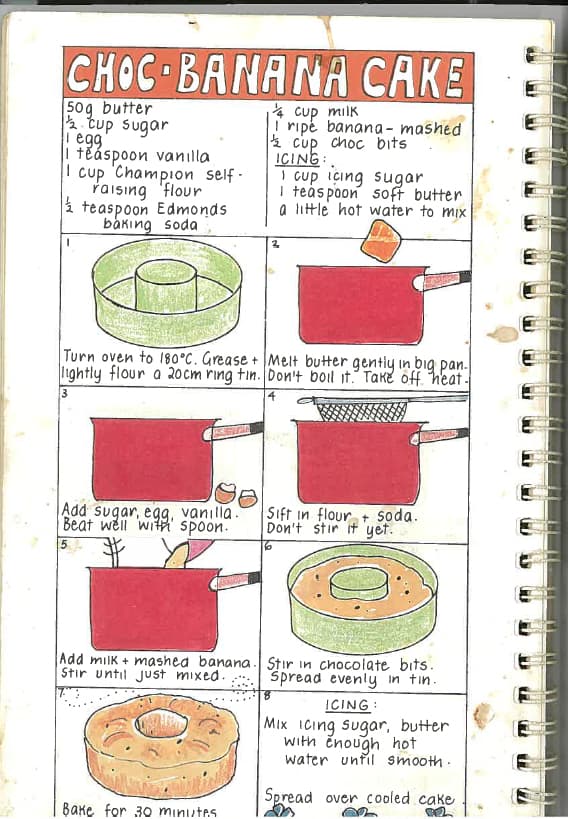 CHOC·BANANA CAKE
50g butter
½ cup sugar
1 egg
1 teaspoon vanilla
1 cup Champion self-
raising flour
½ teaspoon Edmonds
baking soda
¼ cup milk
1 ripe banana - mashed
½ cup choc bits
ICING:
1 cup icing sugar
1 teaspoon soft butter
a little hot water to mix
1
Turn oven to 180°C. Grease +
lightly flour a 20cm ring tin.
2
Melt butter gently in big pan.
Don't boil it. Take off heat.
3
Add sugar, egg, vanilla.
Beat well with spoon.
4
Sift in flour + soda.
Don't stir it yet.
5
Add milk + mashed banana.
Stir until just mixed.
6
Stir in chocolate bits.
Spread evenly in tin.
7
Bake for 30 minutes
8
ICING:
Mix icing sugar, butter
with enough hot
water until smooth.
Spread over cooled cake.